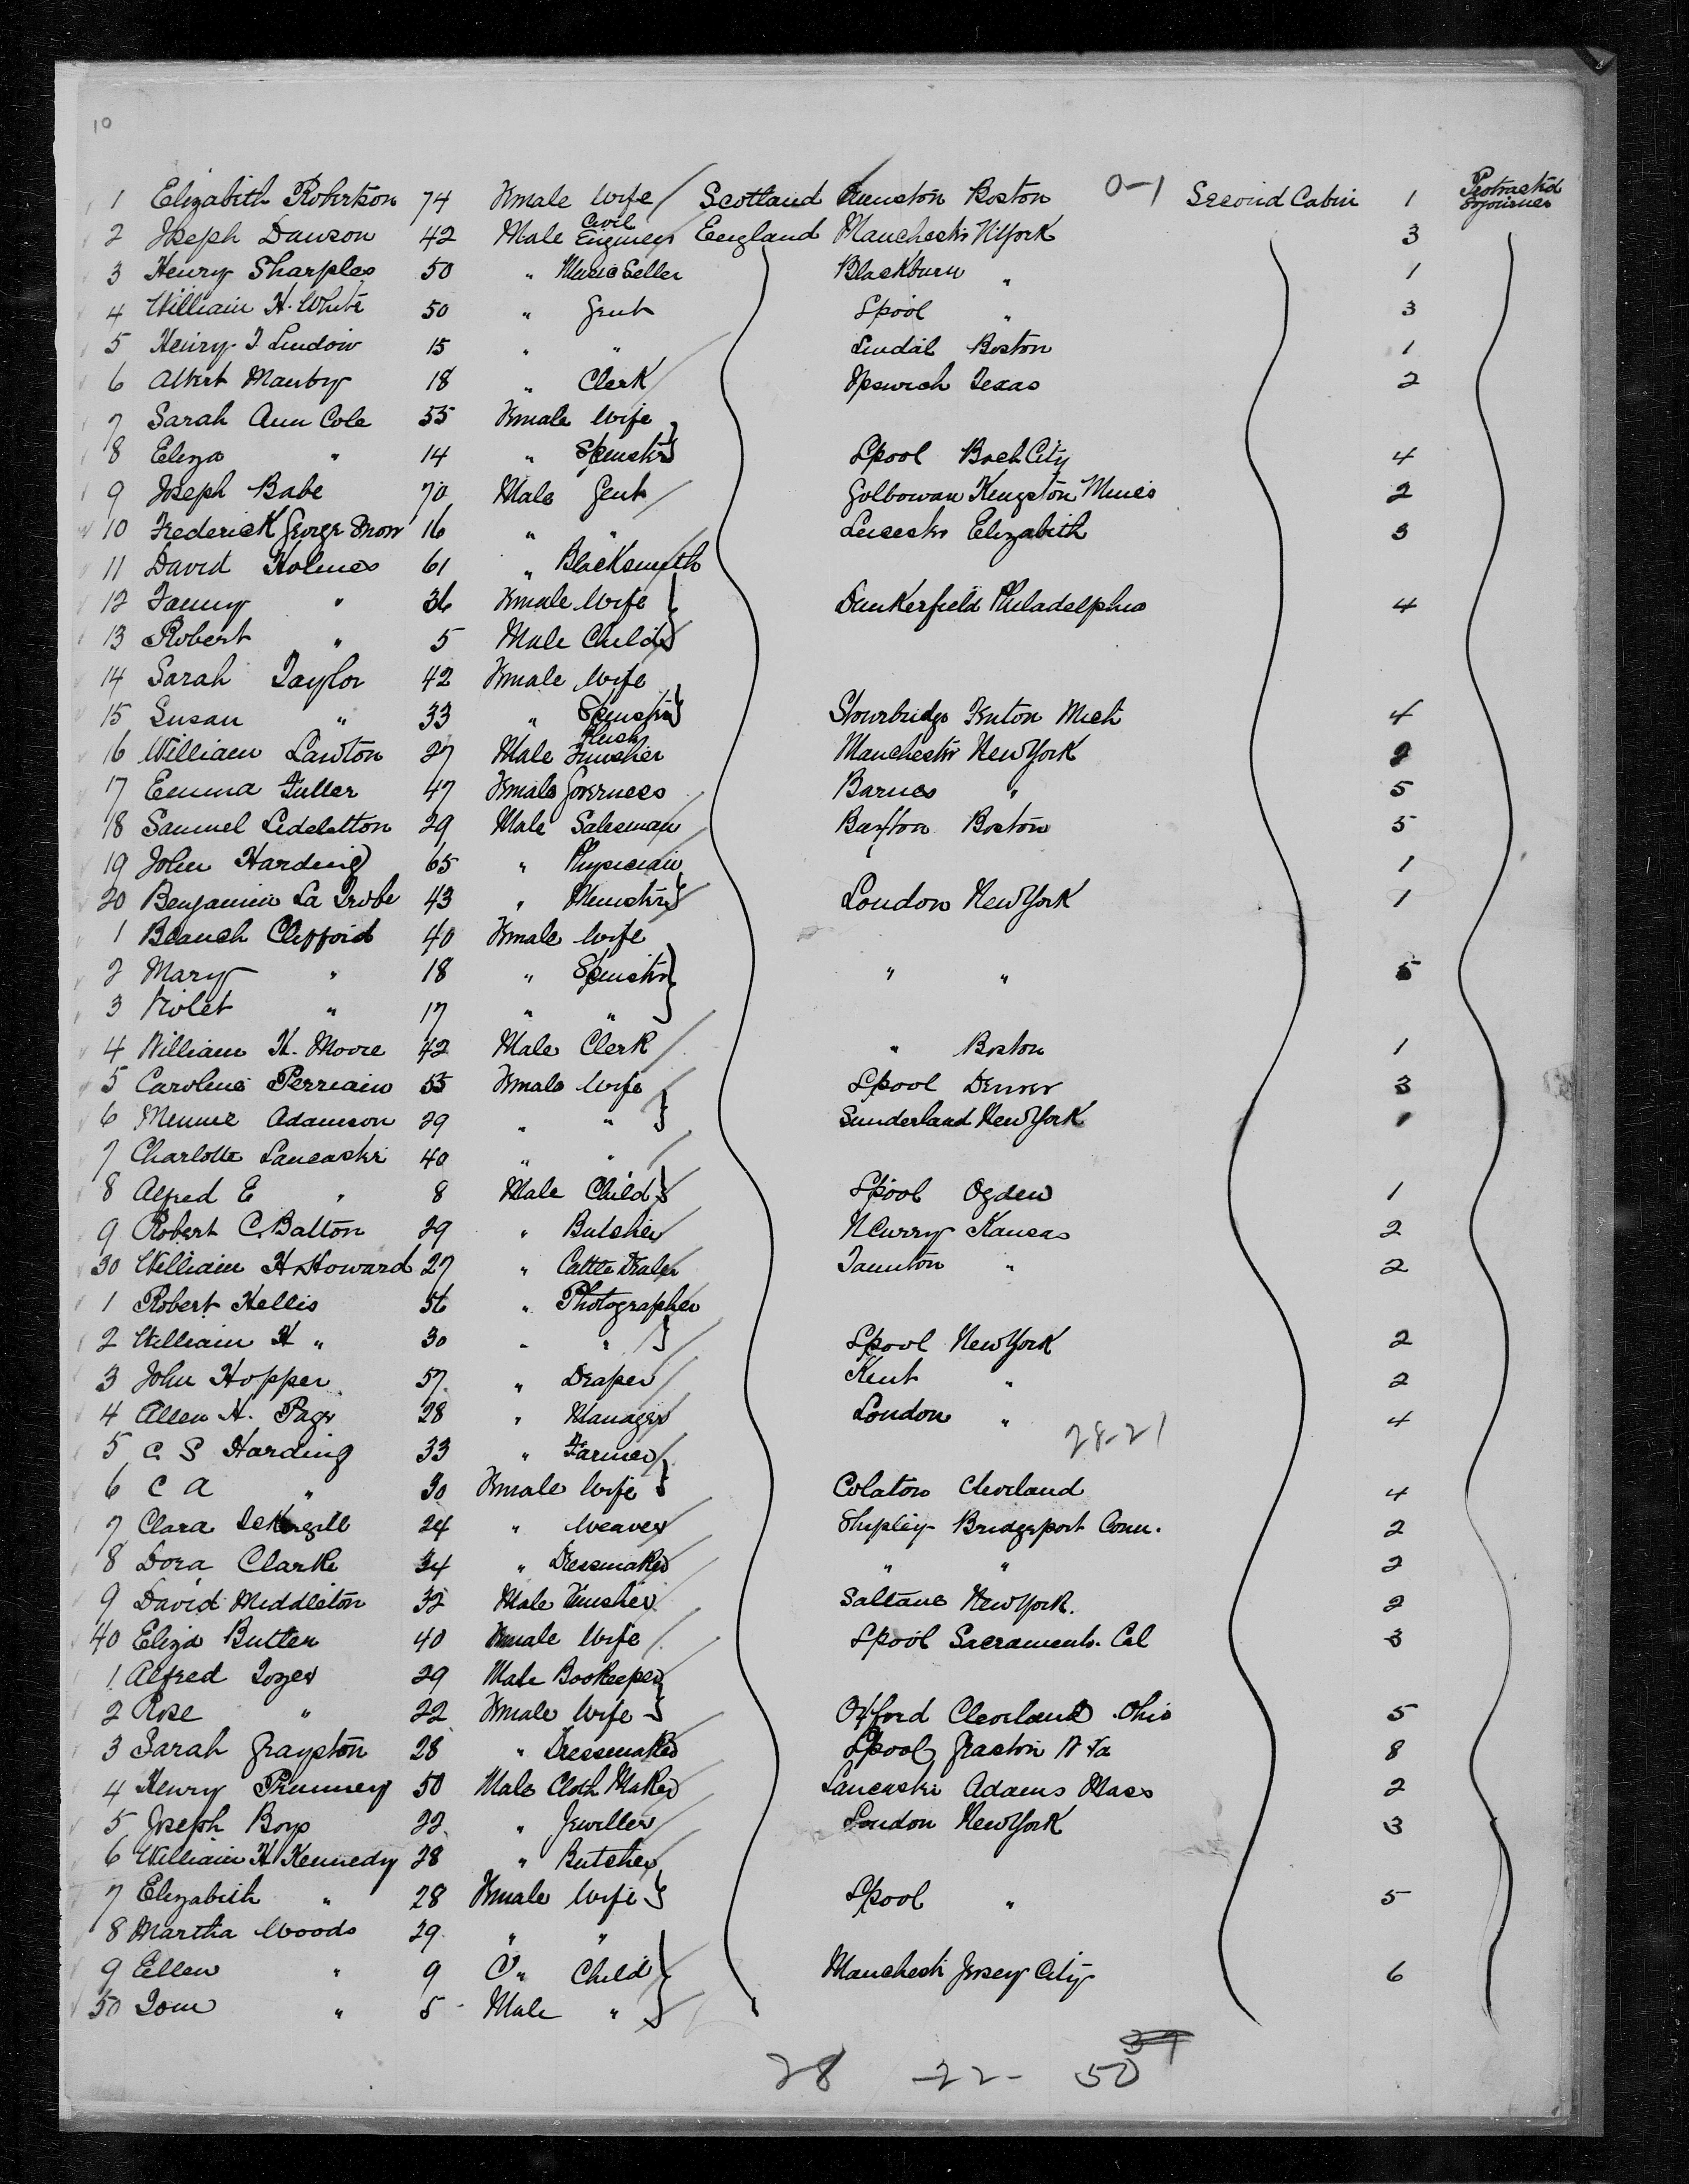 10
1 Elizabeth Robertson 74 Female Wife Scotland Boston 0-1 Second Cabin 1 Protracted Sojourner
2 Joseph Dawson 42 Male Civil Engineer England Manchester N York 3
3 Henry Sharples 50 " Music Seller Blackburn " 1
4 William H. White 50 " Gent Lpool " 3
5 Henry J Lindow 15 " " Lindal Boston 1
6 Albert Manby 18 " Clerk Ipswich Texas 2
7 Sarah Ann Cole 55 Female Wife
8 Eliza " 14 " Spinster Lpool City 4
9 Joseph Babe 70 Male Gent Kingston Mines 2
10 Frederick George Snow 16 " " Leicester Elizabeth 3
11 David Holmes 61 " Blacksmith
12 Fanny " 36 Female Wife Dunkerfield Philadelphia 4
13 Robert " 5 Male Child
14 Sarah Taylor 42 Female Wife
15 Susan " 33 " Spinster Stourbridge Fenton Mich 4
16 William Lawton 27 Male Plush Finisher Manchester New York 2
17 Emma Fuller 47 Female Governess Barnes " 5
18 Samuel 29 Male Salesman Boston 5
19 John Harding 65 " Physician 1
20 Benjamin La Trobe 43 " Minister London New York 1
1 Blanch Clifford 40 Female Wife
2 Mary " 18 " Spinster " " 5
3 Violet " 17 " "
4 William H. Moore 42 Male Clerk " Boston 1
5 Caroline Perriam 55 Female Wife Lpool Denver 3
6 Minnie Adamson 29 " " Sunderland New York 1
7 Charlotte Lancaster 40 " "
8 Alfred E " 8 Male Child Lpool Ogden 1
9 Robert C. Balton 29 " Butcher Newry Kansas 2
30 William H Howard 27 " Cattle Dealer Taunton " 2
1 Robert Hellis 56 " Photographer
2 William H " 30 " " Lpool New York 2
3 John Hopper 57 " Draper Kent " 2
4 Allen H. Page 28 " Manager London " 4
28-21
5 C S Harding 33 " Farmer
6 C A " 30 Female Wife Colaton Cleveland 4
7 Clara 24 " Weaver Shipley Bridgeport Conn. 2
8 Dora Clarke 34 " Dressmaker " " 2
9 David Middleton 32 Male Finisher Saltane New York. 2
40 Eliza Butler 40 Female Wife Lpool Sacramento. Cal 3
1 Alfred Tozer 29 Male Bookeeper
2 Rose " 22 Female Wife Oxford Cleveland Ohio 5
3 Sarah Grayston 28 " Dressmaker Lpool Grafton W Va 8
4 Henry 50 Male Cloth Maker Lancaster Adams Mass 2
5 Joseph Boys 22 " Jeweller London New York 3
6 William H Kennedy 28 " Butcher
7 Elizabeth " 28 Female Wife Lpool " 5
8 Martha Woods 29 " "
9 Ellen " 9 " Child Manchestr Jersey City 6
50 Tom " 5 Male "
39
28 - 22 - 50